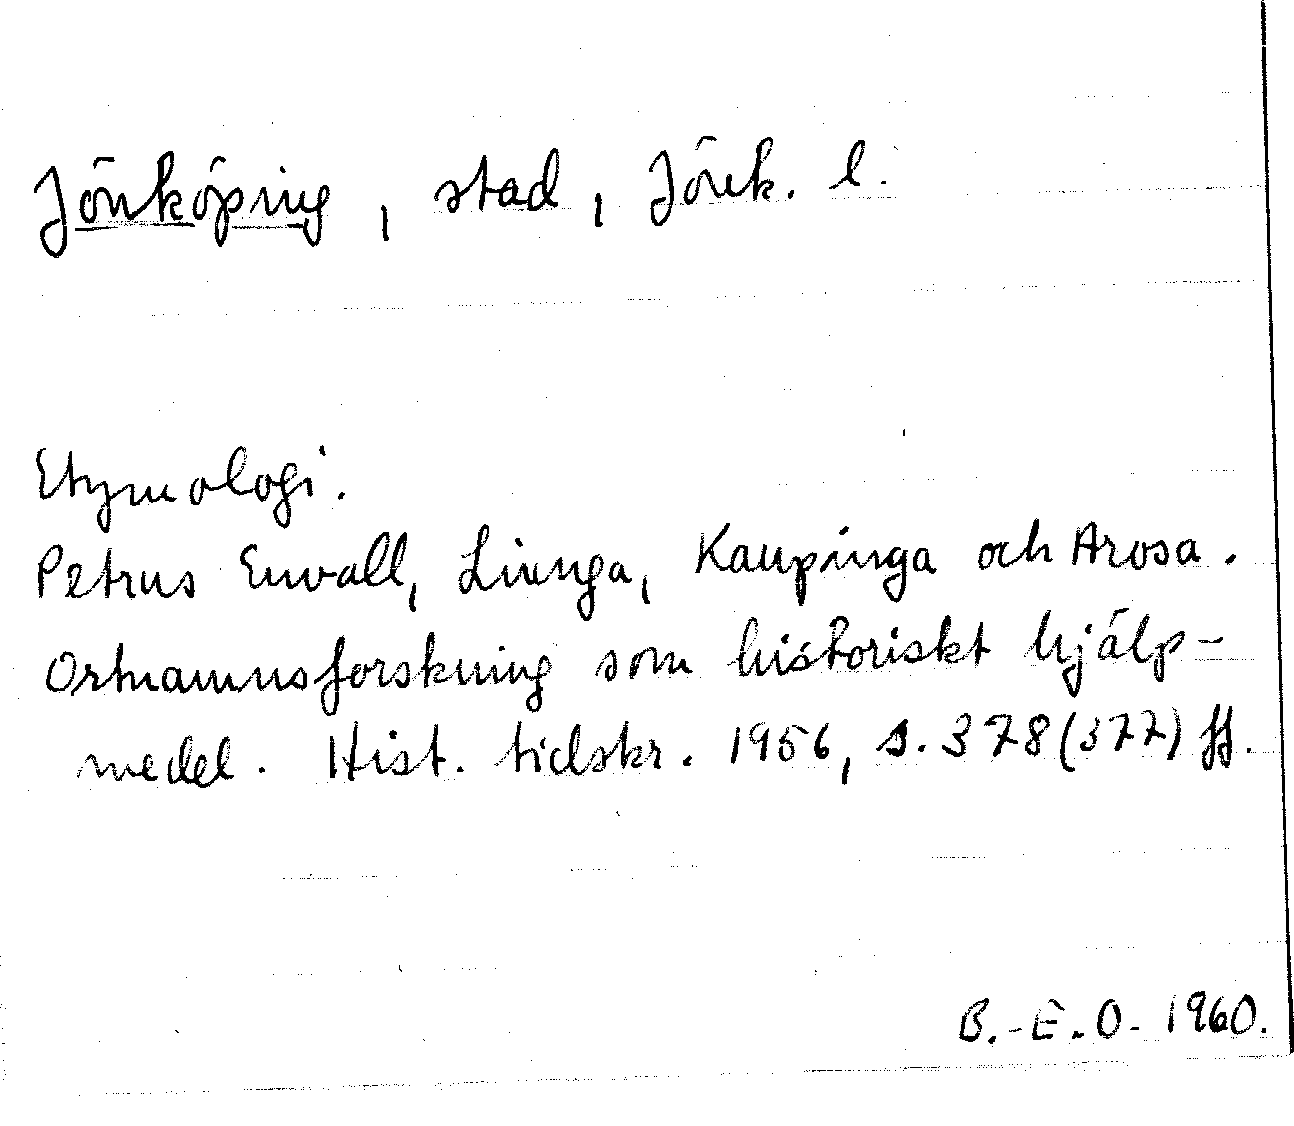 Jönköping, stad, Jönk. l.
Etymologi.
Petrus Envall, Liunga, Kaupinga och Arosa.
Ortnamnsforskning som historiskt hjälp-
medel. Hist. tidskr. 1956, s. 378 (377) ff.
B.-E. O. 1960.